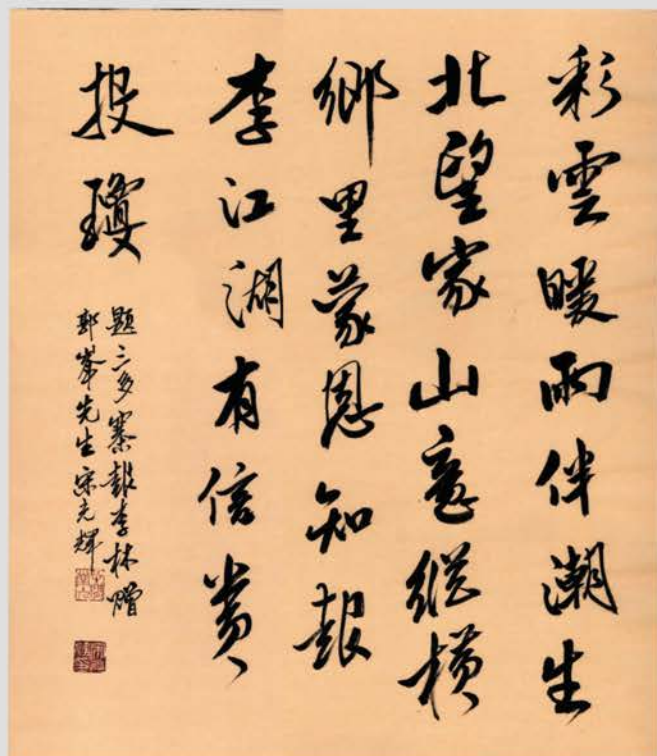 彩雲暖雨伴潮生
北望家山意縱橫
鄉里蒙恩知報
李江湖有信貴
投瓊
題三多寨報李林贈
郭峯先生宋光輝